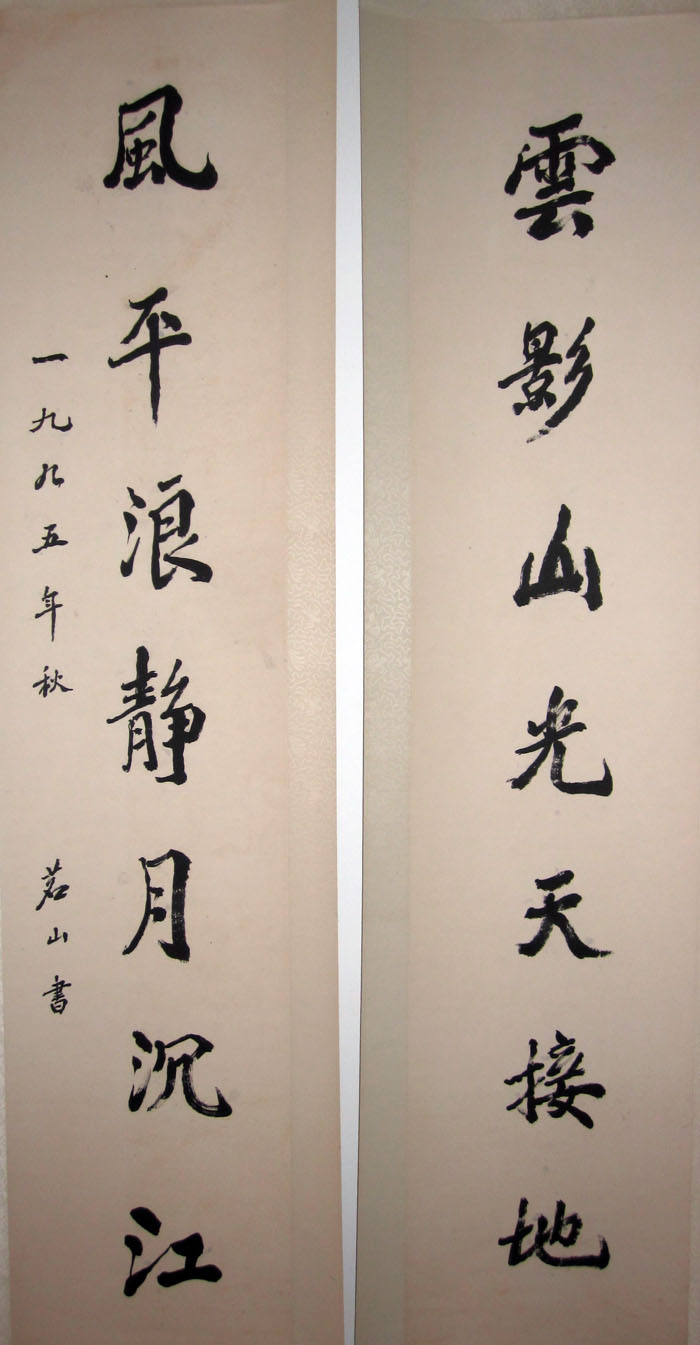 雲影山光天接地
風平浪靜月沉江
一九九五年秋 茗山書